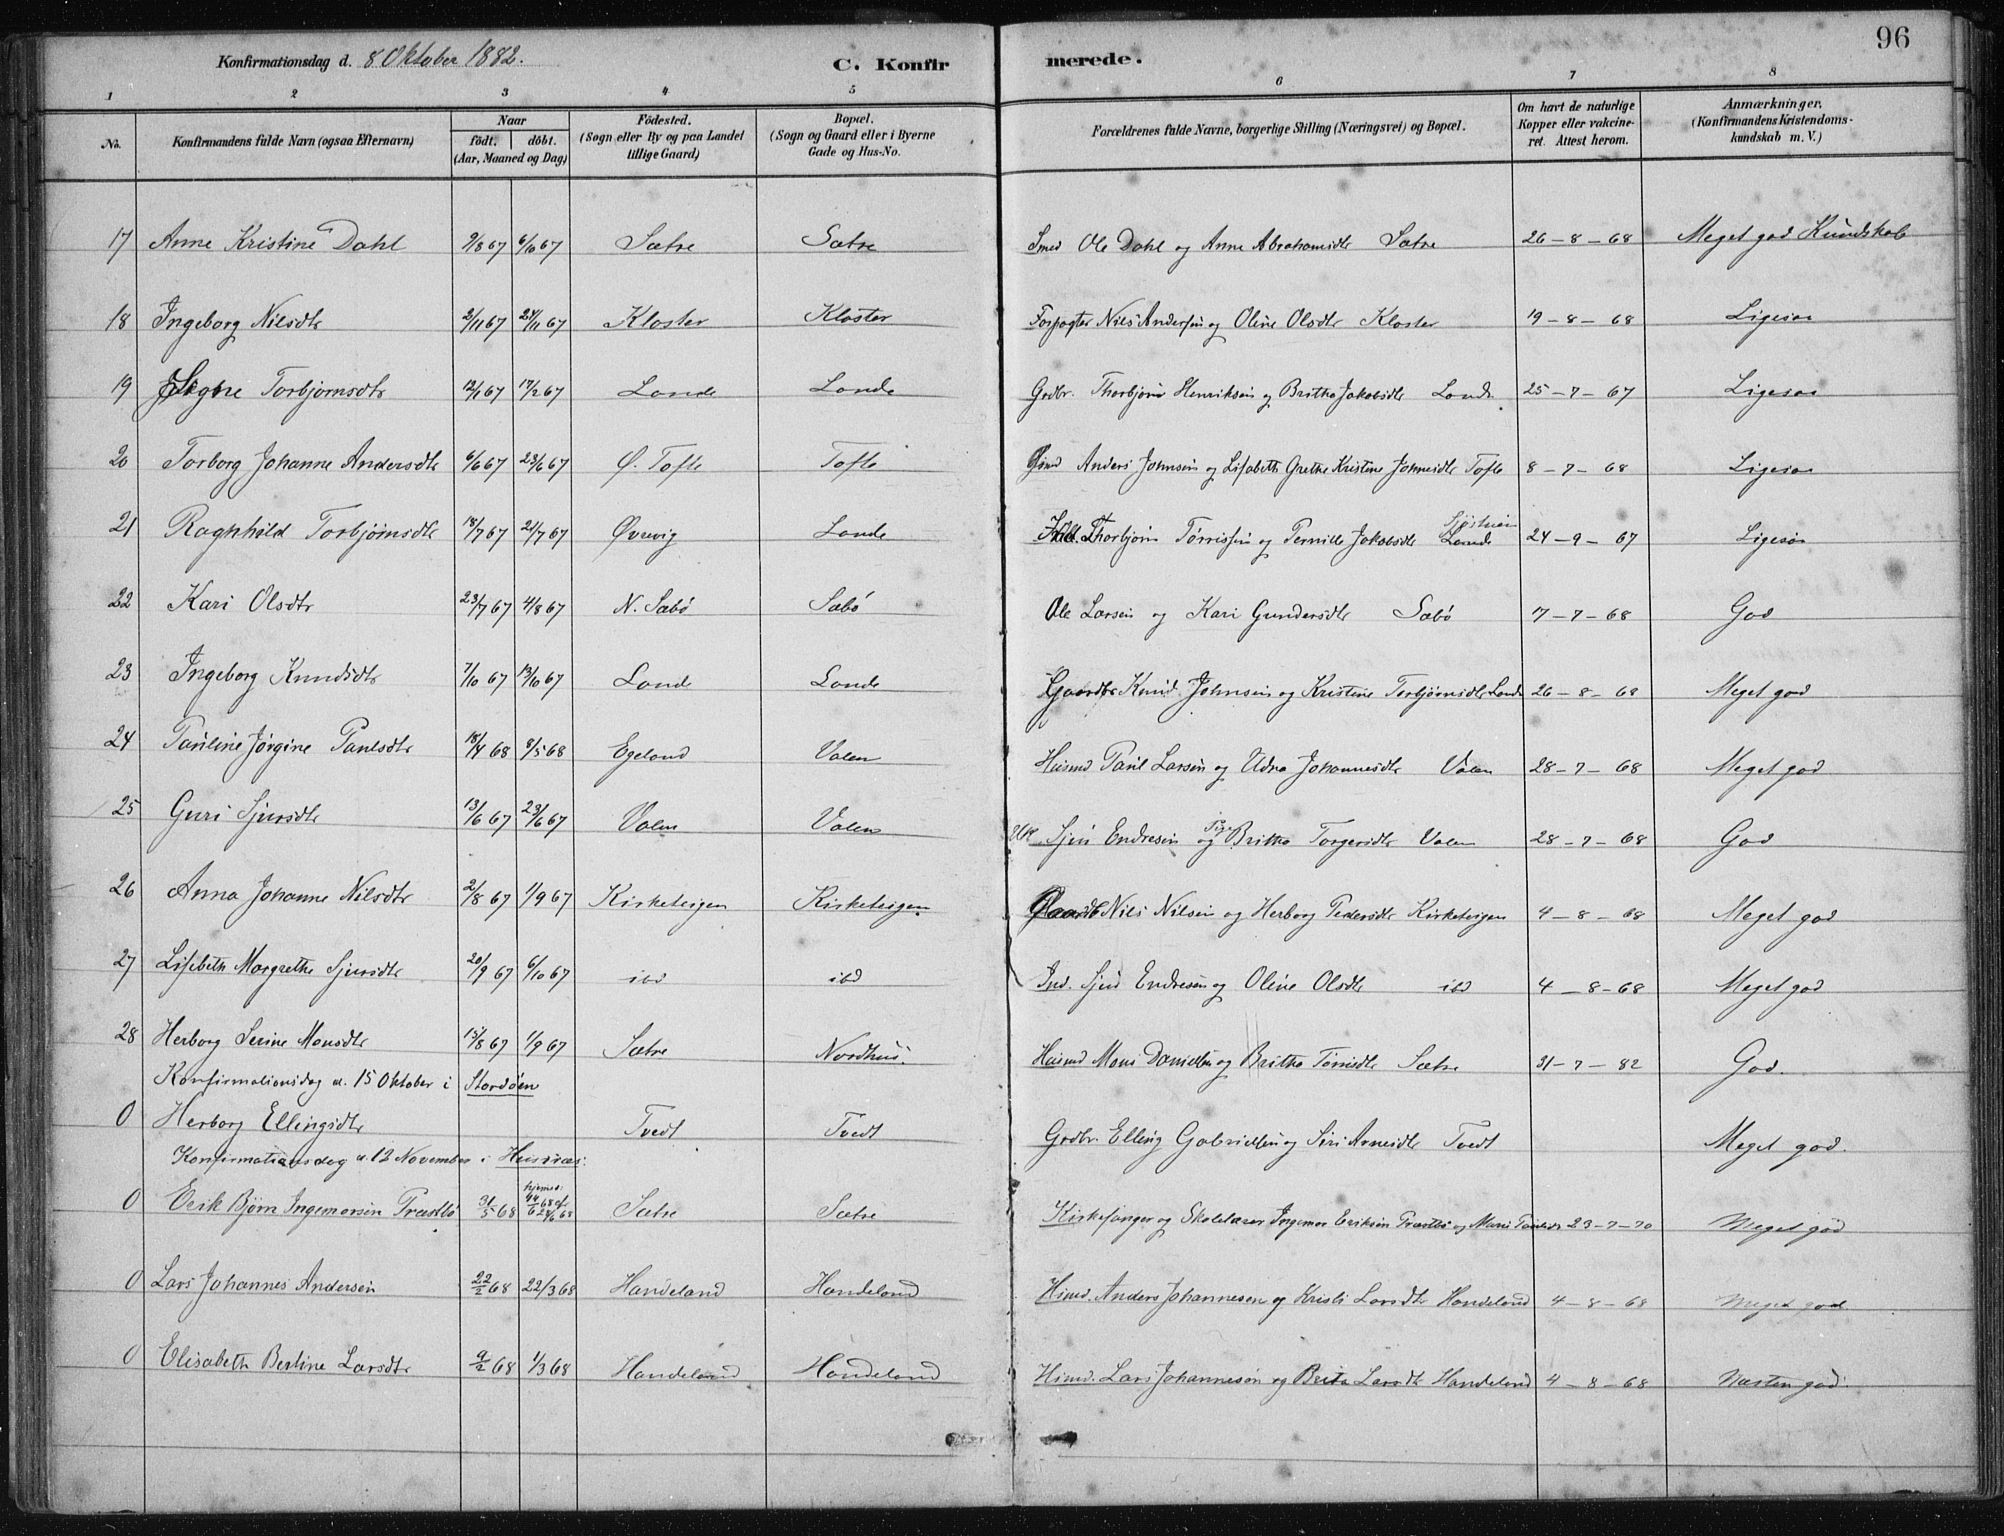 96
Konfirmationsdag d. 8 Oktober 1882. C. Konfirmerede.
1 2 3 4 5 6 7 8
No. Konfirmandens fulde Navn (ogsaa Efternavn) Naar födt. döbt. (Aar, Maaned og Dag) Födested. (Sogn eller By og paa Landet tillige Gaard) Bopæl. (Sogn og Gaard eller i Byerne Gade og Hus-No. Forældrenes fulde Navne, borgerlige Stilling (Næringsvei) og Bopæl. Om havt de naturlige Kopper eller vakcineret. Attest herom. Anmærkninger. (Konfirmandens Kristendomskundskab m. V.)
17 Anne Kristine Dahl 9/8 67 6/10 67 Sætre Sætre Smed Ole Dahl og Anne Abrahamsdtr Sætre 26-8-68 Meget god Kundskab
18 Ingeborg Nilsdtr 2/11 67 24/11 67 Kloster Kloster Forpagter Nils Andersen og Oline Olsdtr Kloster 19-8-68 Ligesaa
19 Signe Torbjørnsdtr 12/1 67 17/2 67 Lande Lande Grdbr. Thorbjørn Henriksen og Britha Jakobsdtr Lande 25-7-67 Ligesaa
20 Torborg Johanne Andersdtr 6/6 67 23/6 67 Ø. Tofte Tofte Anders Johnsen og Lisabeth Grethe Kristine Johnsdtr Tofte 8-7-68 Ligesaa
21 Raghnhild Torbjørnsdtr 18/7 67 21/7 67 Øvrevig Lande Thorbjørn Tørrissen og Pernille Jakobsdtr Lande 24-9-67 Ligesaa
22 Kari Olsdtr 23/7 67 4/8 67 N. Sæbø Sæbø Ole Larsen og Kari Gundersdtr Sæbø 7-7-68 God
23 Ingeborg Knudsdtr 7/10 67 13/10 67 Lande Lande Gaardbr Knud Johnsen og Kristine Torbjørnsdtr Lande 26-8-68 Meget god
24 Pauline Jørgine Paulsdtr 18/4 68 8/5 68 Egeland Valen Husmd Paul Larsen og Udna Johannesdtr Valen 28-7-68 Meget god
25 Guri Sjursdtr 13/6 67 23/6 67 Valen Valen Sjur Endresen og Pige Britha Torgersdtr Valen 28-7-68 God
26 Anna Johanne Nilsdtr 2/8 67 1/9 67 Kirketeigen Kirketeigen Gaardbr Nils Nilsen og Herborg Pedersdtr Kirketeigen 4-8-68 Meget god
27 Lisebeth Margrethe Sjursdtr 20/9 67 6/10 67 ibd ibd Ind. Sjur Endresen og Oline Olsdtr ibd 4-8-68 Meget god
28 Herborg Serine Monsdtr 15/8 67 1/9 67 Sætre Nordhus Husmd Mons Danielsen og Britha Tørrisdtr Sætre 31-7-82 God.
Konfirmationsdag d. 15 Oktober i Stordøen
0 Herborg Ellingsdtr Tvedt Tvedt Grdbr. Elling Gabrielsen og Siri Arnesdtr Tvedt Meget god.
Konfirmationsdag d. 12 November i Husnæs.
0 Erik Bjørn Ingemarsen Præstbø 31/5 68 hjemmed: 14/6 68 28/6 68 Sætre Sætre Kirkesanger og Skolelærer Ingemar Eriksen Præstbø og Mari Paulsdtr 23-7-70 Meget god
0 Lars Johannes Andersen 22/2 68 22/3 68 Handeland Handeland Husmd. Anders Johannesen og Kristi Larsdtr Handeland 4-8-68 Meget god
0 Elisabeth Bertine Larsdtr 9/2 68 1/3 68 Handeland Handeland Husmd. Lars Johannesøn og Brita Larsdtr Handeland 4-8-68 Næsten god.